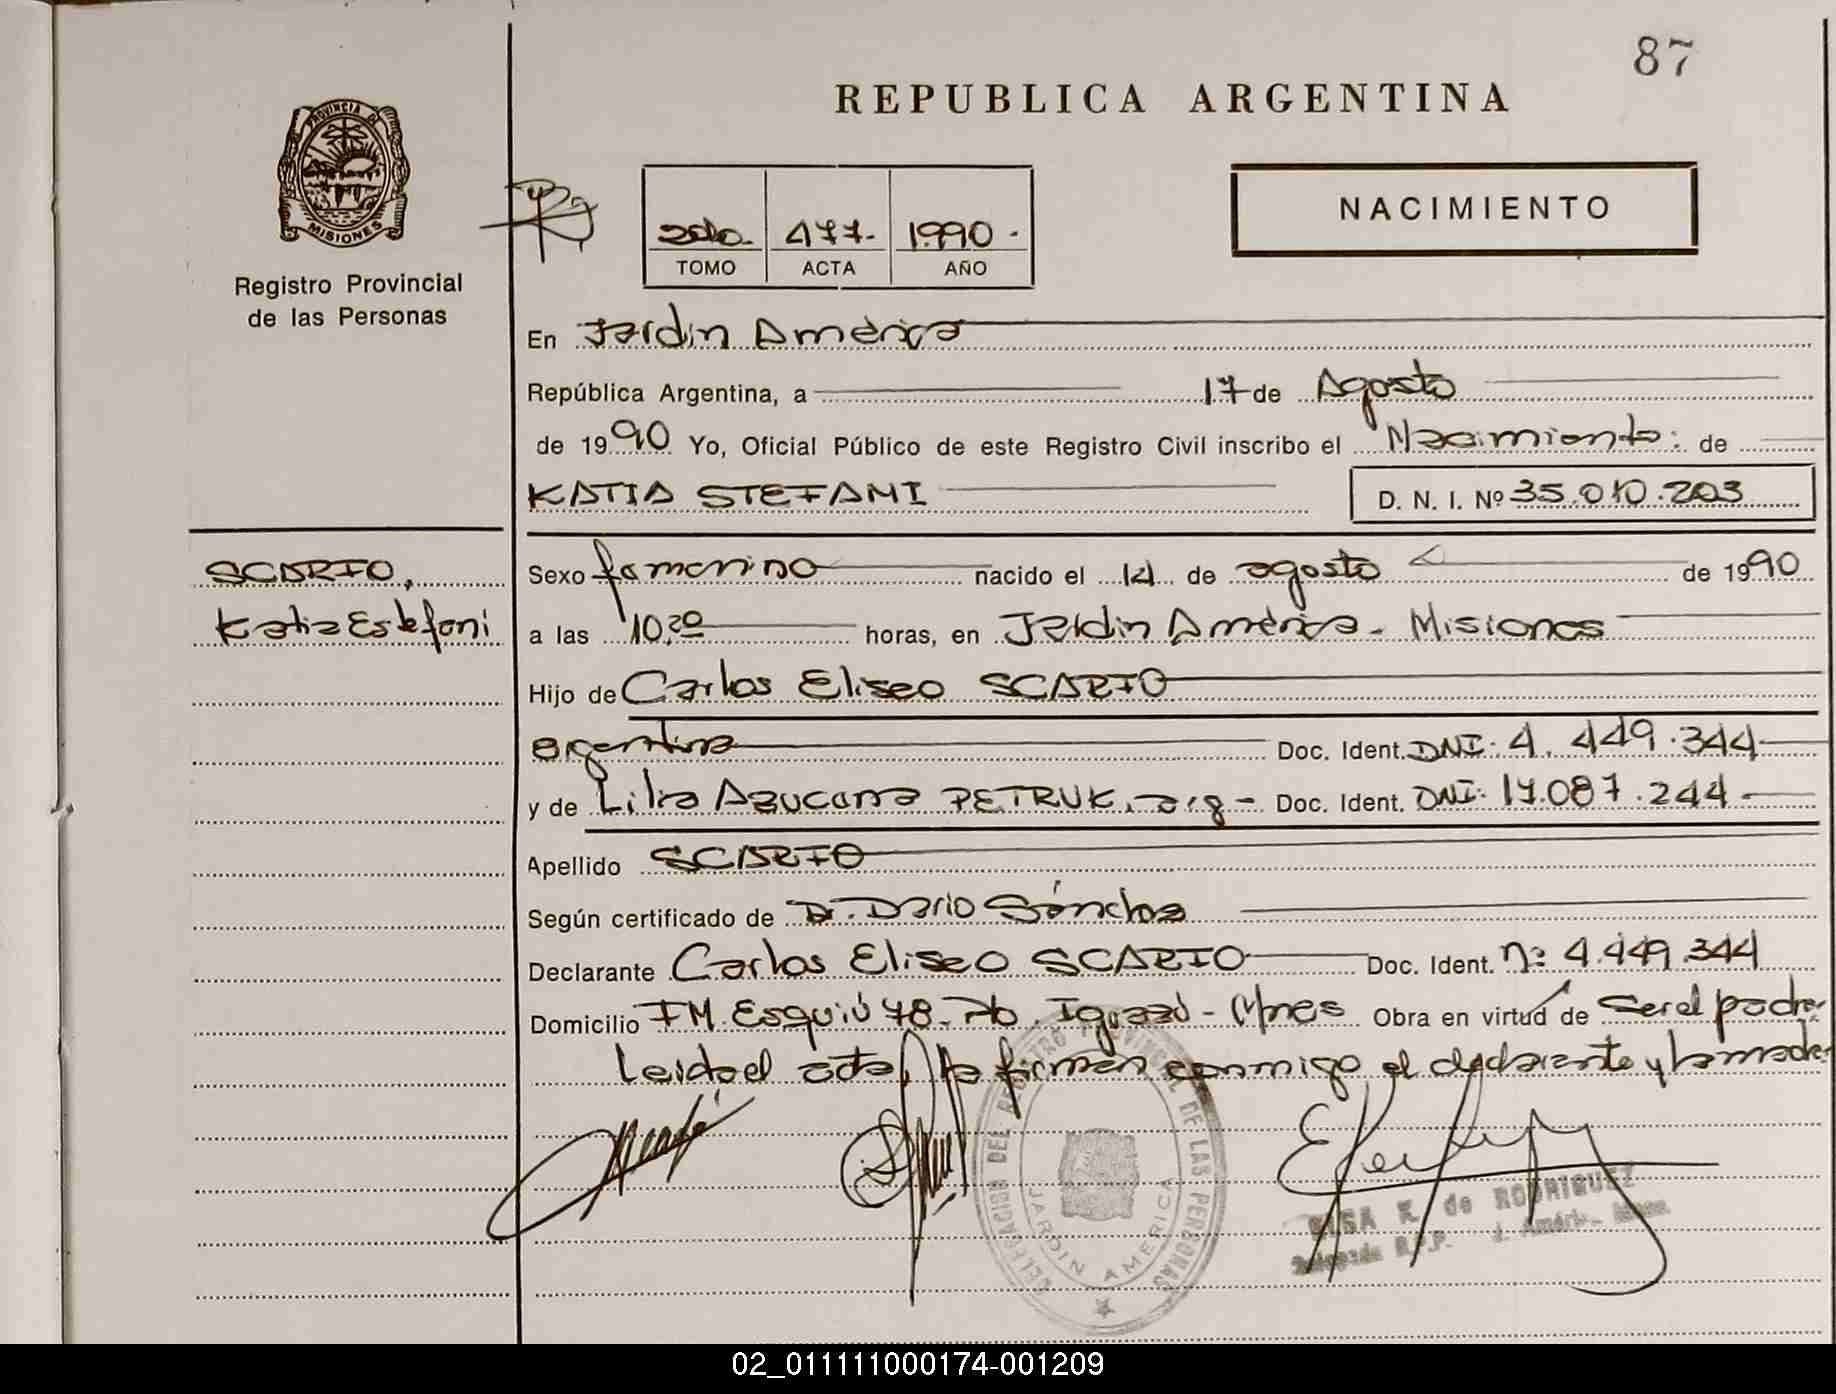 87
REPUBLICA ARGENTINA
PROVINCIA DE
MISIONES
Registro Provincial
de las Personas
2do. 477.- 1990.-
TOMO ACTA AÑO
NACIMIENTO
En Jardín América
República Argentina, a 17 de Agosto
de 1990 Yo, Oficial Público de este Registro Civil inscribo el Nacimiento: de
KATIA STEFANI D. N. I. Nº 35.010.203
SCARFO,
Katia Estefani
Sexo femenino nacido el 14 de agosto de 1990
a las 10,20 horas, en Jardín América - Misiones
Hijo de Carlos Eliseo SCARFO
argentina Doc. Ident. DNI: 4.449.344
y de Lilia Azucena PETRUK, arg - Doc. Ident. DNI: 17.087.244 -
Apellido SCARFO
Según certificado de Dr. Dario Sánchez
Declarante Carlos Eliseo SCARFO Doc. Ident. Nº 4.449.344
Domicilio FM. Esquiú 78. Pto. Iguazú - Mnes Obra en virtud de ser el padre
Leida el acta, la firman conmigo el declarante y la madre
DELEGACION DEL REGISTRO PROVINCIAL DE LAS PERSONAS
JARDIN AMERICA
K. de RODRIGUEZ
Delegada R.P.P. J. Améric- Mnes.
02_011111000174-001209